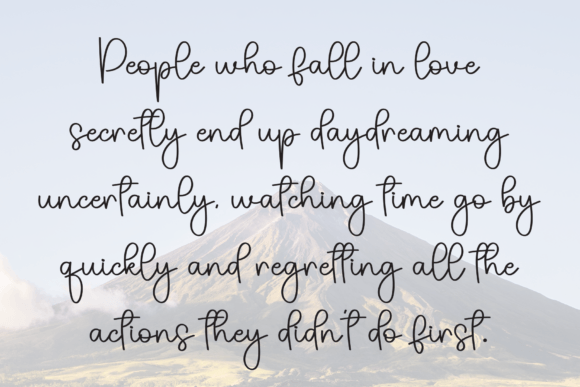 People who fall in love
secretly end up daydreaming
uncertainly. watching time go by
quickly and regretting all the
actions they didn't do first.